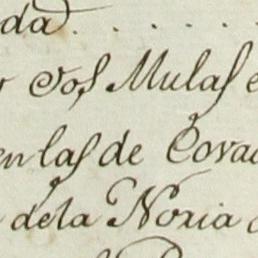 da. . . . . .
y dos Mulas e
en las de Cova
dela Noria d